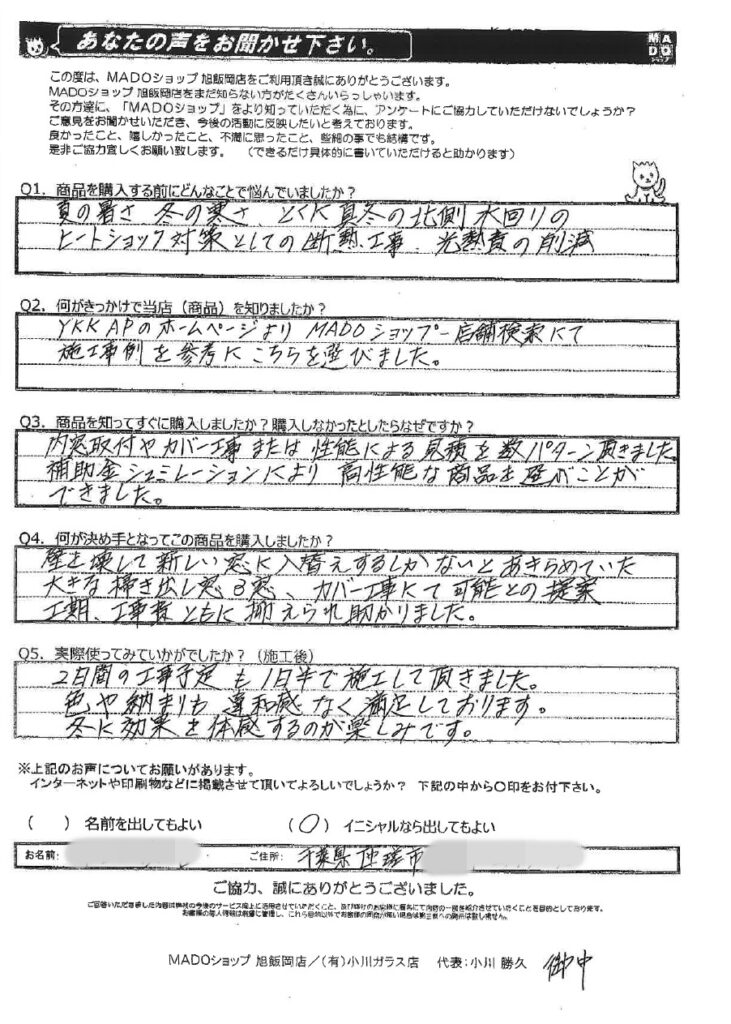 あなたの声をお聞かせ下さい。
MADO
ショップ
この度は、MADOショップ 旭飯岡店をご利用頂き誠にありがとうございます。
MADOショップ 旭飯岡店をまだ知らない方がたくさんいらっしゃいます。
その方達に、「MADOショップ」をより知っていただく為に、アンケートにご協力していただけないでしょうか？
ご意見をお聞かせいただき、今後の活動に反映したいと考えております。
良かったこと、嬉しかったこと、不満に思ったこと、些細の事でも結構です。
是非ご協力宜しくお願い致します。 （できるだけ具体的に書いていただけると助かります）
Q1．商品を購入する前にどんなことで悩んでいましたか？
夏の暑さ 冬の寒さ、とくに真冬の北側 水回りの
ヒートショック対策としての断熱工事、光熱費の削減
Q2．何がきっかけで当店（商品）を知りましたか？
YKK APのホームページより MADOショップ－店舗検索にて
施工事例を参考に こちらを選びました。
Q3．商品を知ってすぐに購入しましたか？購入しなかったとしたらなぜですか？
内窓取付やカバー工事または性能による見積を数パターン頂きました。
補助金シュミレーションにより 高性能な商品を選ぶことが
できました。
Q4．何が決め手となってこの商品を購入しましたか？
壁を壊して新しい窓に入替えするしかないとあきらめていた
大きな掃き出し窓3窓、カバー工事にて可能との提案
工期、工事費ともに抑えられ助かりました。
Q5．実際使ってみていかがでしたか？（施工後）
2日間の工事予定も1日半で施工して頂きました。
色や納まりも違和感なく満足しております。
冬に効果を体感するのが楽しみです。
※上記のお声についてお願いがあります。
インターネットや印刷物などに掲載させて頂いてよろしいでしょうか？ 下記の中から〇印をお付下さい。
（ ）名前を出してもよい （〇）イニシャルなら出してもよい
お名前： ご住所： 千葉県匝瑳市
ご協力、誠にありがとうございました。
MADOショップ 旭飯岡店／(有)小川ガラス店 代表：小川 勝久 御中